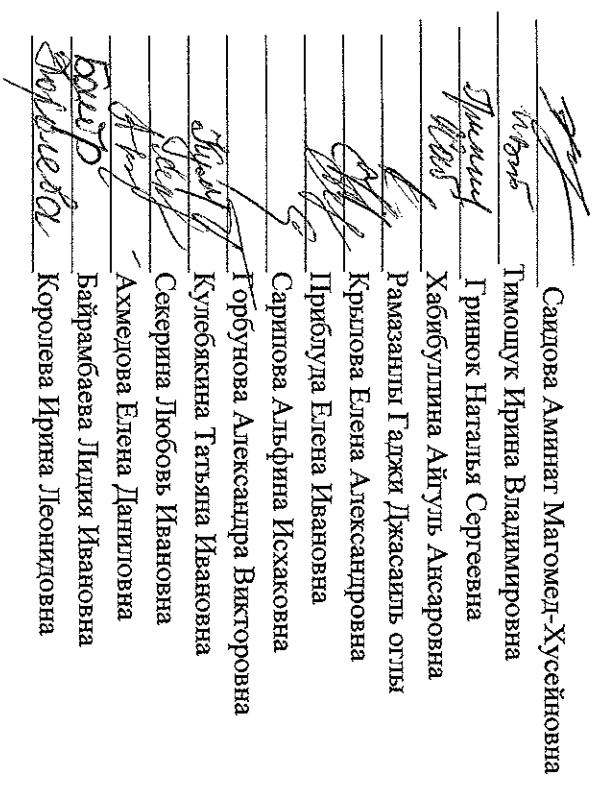 Саидова Аминат Магомед-Хусейновна
Тимощук Ирина Владимировна
Гринюк Наталья Сергеевна
Хабибуллина Айгуль Ансаровна
Рамазанлы Гаджи Джасаиль оглы
Крылова Елена Александровна
Приблуда Елена Ивановна
Сарипова Альфина Исхаковна
Горбунова Александра Викторовна
Кулебякина Татьяна Ивановна
Секерина Любовь Ивановна
Ахмедова Елена Даниловна
Байрамбаева Лидия Ивановна
Королева Ирина Леонидовна